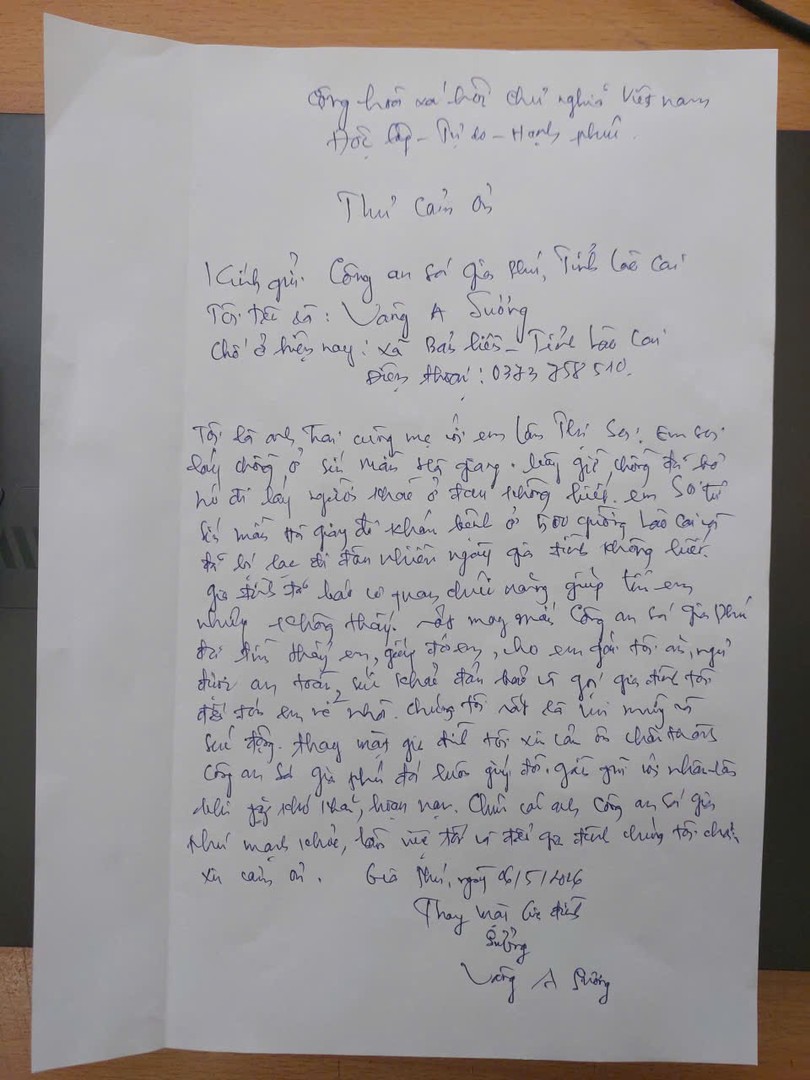 Cộng hoà xã hội chủ nghĩa Việt nam
Độc lập - Tự do - Hạnh phúc.
Thư cảm ơn
Kính gửi: Công an xã Gia phú, Tỉnh Lào Cai
Tôi tên là: Vàng A Sưởng
Chỗ ở hiện nay: xã Bản liền - Tỉnh Lào Cai
Điện thoại: 0373 758 510.
Tôi là anh trai cùng mẹ với em Lâm Thị So. Em So
lấy chồng ở Sín mần Hà giang. bây giờ chồng đã bỏ
nó đi lấy người khác ở đâu không biết. em So từ
Sín mần Hà giang đi khám bệnh ở 500 giường Lào Cai
đã bị lạc đi đâu nhiều ngày gia đình không biết.
gia đình đã báo cơ quan chức năng giúp tìm em
nhưng không thấy. rất may mắn Công an xã Gia phú
đã tìm thấy em, giúp đỡ em, cho em gái tôi ăn, ngủ
được an toàn, sức khoẻ đảm bảo và gọi gia đình tôi
đến đón em về nhà. chúng tôi rất là vui mừng và
xúc động. thay mặt gia đình tôi xin cảm ơn chân thành
Công an xã Gia phú đã luôn giúp đỡ. gần gũi với nhân dân
khi gặp khó khăn, hoạn nạn. Chúc các anh Công an xã gia
phú mạnh khoẻ, làm việc tốt và gia đình chúng tôi
xin cảm ơn. Gia Phú, ngày 06/5/2026
Thay mặt Gia đình
Sưởng
Vàng A Sưởng